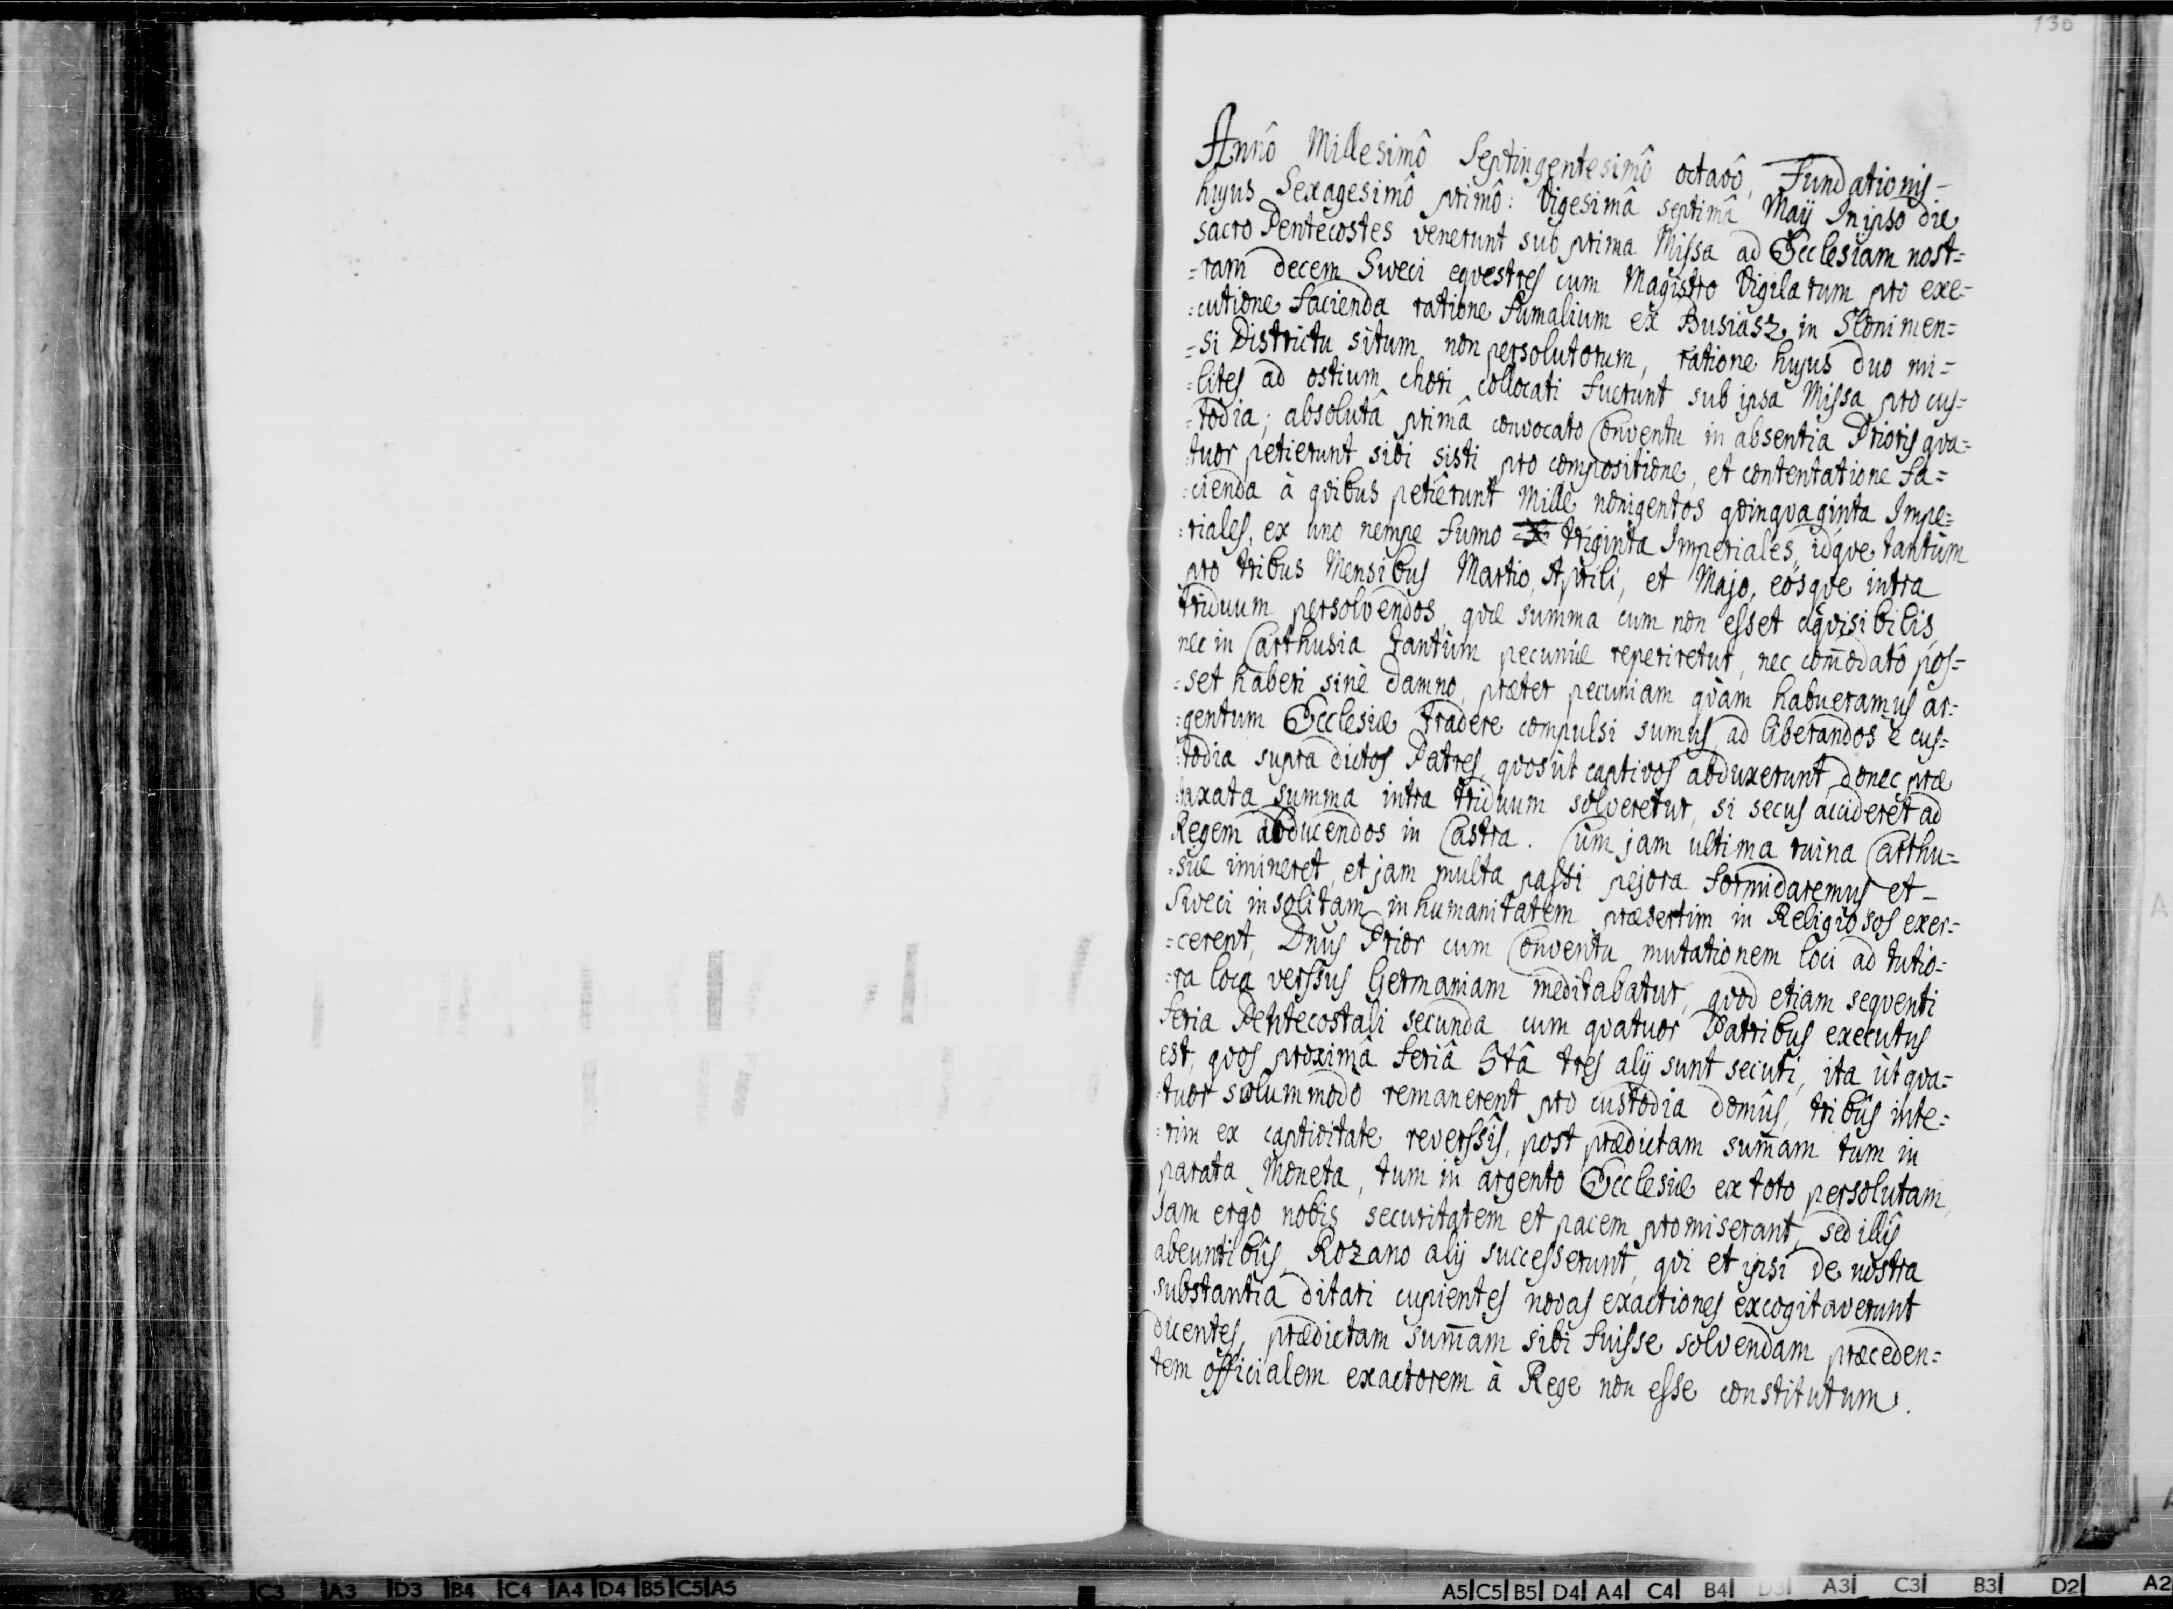 130
Annô Millesimô Septingentesimô octavô, Fundationis -
hujus Sexagesimô primô: Vigesimâ septimâ Maÿ In ipso die
sacro Pentecostes venerunt sub prima Missa ad Ecclesiam nost=
=ram decem Sweci eqvestres cum Magistro Vigilarum pro exe=
=cutione facienda ratione fumalium ex Busiasz in Slonimen=
=si Districtu situm non persolutorum, ratione hujus duo mi=
=lites ad ostium chori collocati fuerunt sub ipsa Missa pro cus=
=todia; absolutâ primâ convocato Conventu in absentia Prioris qva=
tuor petierunt sibi sisti pro compositione, et contentatione fa=
=cienda à qvibus petiêrunt Mille nonigentos qvinqvaginta Impe=
=riales, ex uno nempe fumo triginta Imperiales, idqve tantùm
pro tribus Mensibus Martio, Aprili, et Majo, eosqve intra
triduum persolvendos, qvæ summa cum non esset aqvisibilis,
nec in Carthusia tantùm pecuniæ reperiretur, nec com̄odatô pos=
=set haberi sinè damno, præter pecuniam qvàm habueramus ar=
=gentum Ecclesiæ tradere compulsi sumus, ad liberandos è cus=
=todia supra dictos Patres, qvos ùt captivos abduxerunt donec præ
=taxata summa intra triduum solveretur, si secus accideret ad
Regem abducendos in Castra. Cùm jam ultima ruina Carthu=
=siæ imineret, et jam multa passi pejora formidaremus et -
Sweci insolitam inhumanitatem præsertim in Religiosos exer=
=cerent, Dnus Prior cum Conventu mutationem loci ad tutio=
=ra loca verssus Germaniam meditabatur, qvod etiam seqventi
feria Pentecostali secunda cum qvatuor Patribus executus
est, qvos proximâ feriâ 5tâ tres alÿ sunt secuti, ita ùt qva=
=tuor solummodò remanerent pro custodia domûs, tribûs inte=
=rim ex captivitate reverssîs, post prædictam sum̄am tum in
parata Moneta, tum in argento Ecclesiæ ex toto persolutam,
Jam ergò nobis securitatem et pacem promiserant, sed illîs
abeuntibûs, Rozano alÿ successerunt, qvi et ipsi de nostra
substantia ditari cupientes novas exactiones excogitaverunt
dicentes, prædictam sum̄am sibi fuisse solvendam præceden=
tem officialem exactorem à Rege non esse constitutum.
C3 A3 D3 B4 C4 A4 D4 B5 C5 A5
A5 C5 B5 D4 A4 C4 B4 D3 A3 C3 B3 D2 A2